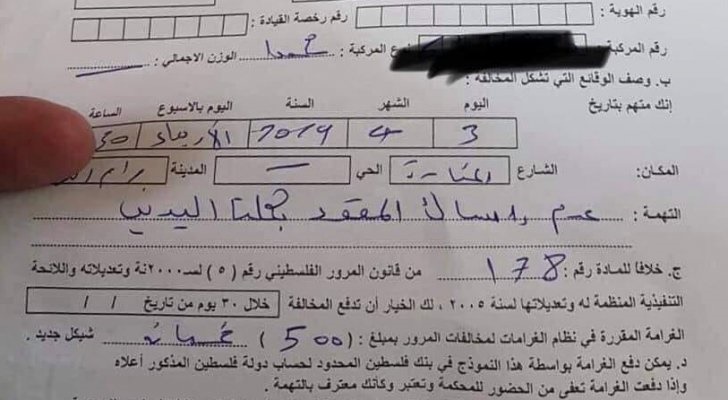 رقم الهوية : رقم رخصة القيادة :
رقم المركبة نوع المركبة : الوزن الاجمالي :
ب. وصف الوقائع التي تشكل المخالفة :
إنك متهم بتاريخ اليوم الشهر السنة اليوم بالاسبوع الساعة
3 4 2019 الأربعاء
المكان: الشارع الحي المدينة
التهمة : عدم إمساك المقود بكلتا اليدين
ج. خلافاً للمادة رقم: 178 من قانون المرور الفلسطيني رقم (٥) لسـ٢٠٠٠ـنة وتعديلاته واللائحة
التنفيذية المنظمة له وتعديلاتها لسنة ٢٠٠٥ ، لك الخيار أن تدفع المخالفة خلال ٣٠ يوم من تاريخ / /
الغرامة المقررة في نظام الغرامات لمخالفات المرور بمبلغ : ( 500 ) خمسمائة شيكل جديد .
د. يمكن دفع الغرامة بواسطة هذا النموذج في بنك فلسطين المحدود لحساب دولة فلسطين المذكور أعلاه
وإذا دفعت الغرامة تعفى من الحضور للمحكمة وتعتبر وكأنك معترف بالتهمة .